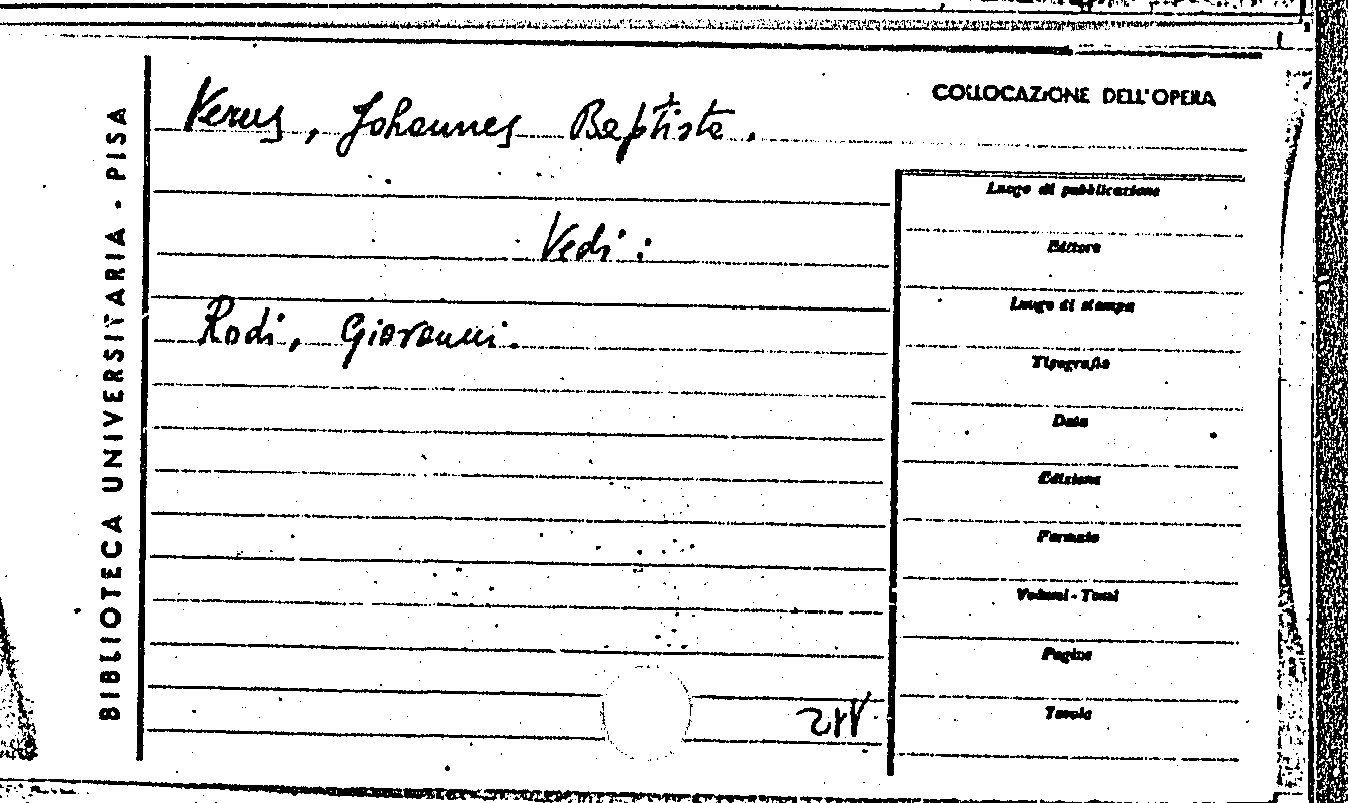 BIBLIOTECA UNIVERSITARIA - PISA
Verus, Johannes Baptista.
Vedi:
Rodi, Giovanni.
COLLOCAZIONE DELL'OPERA
Luogo di pubblicazione
Editore
Luogo di stampa
Tipografia
Data
Edizione
Formato
Volumi - Tomi
Pagine
Tavole